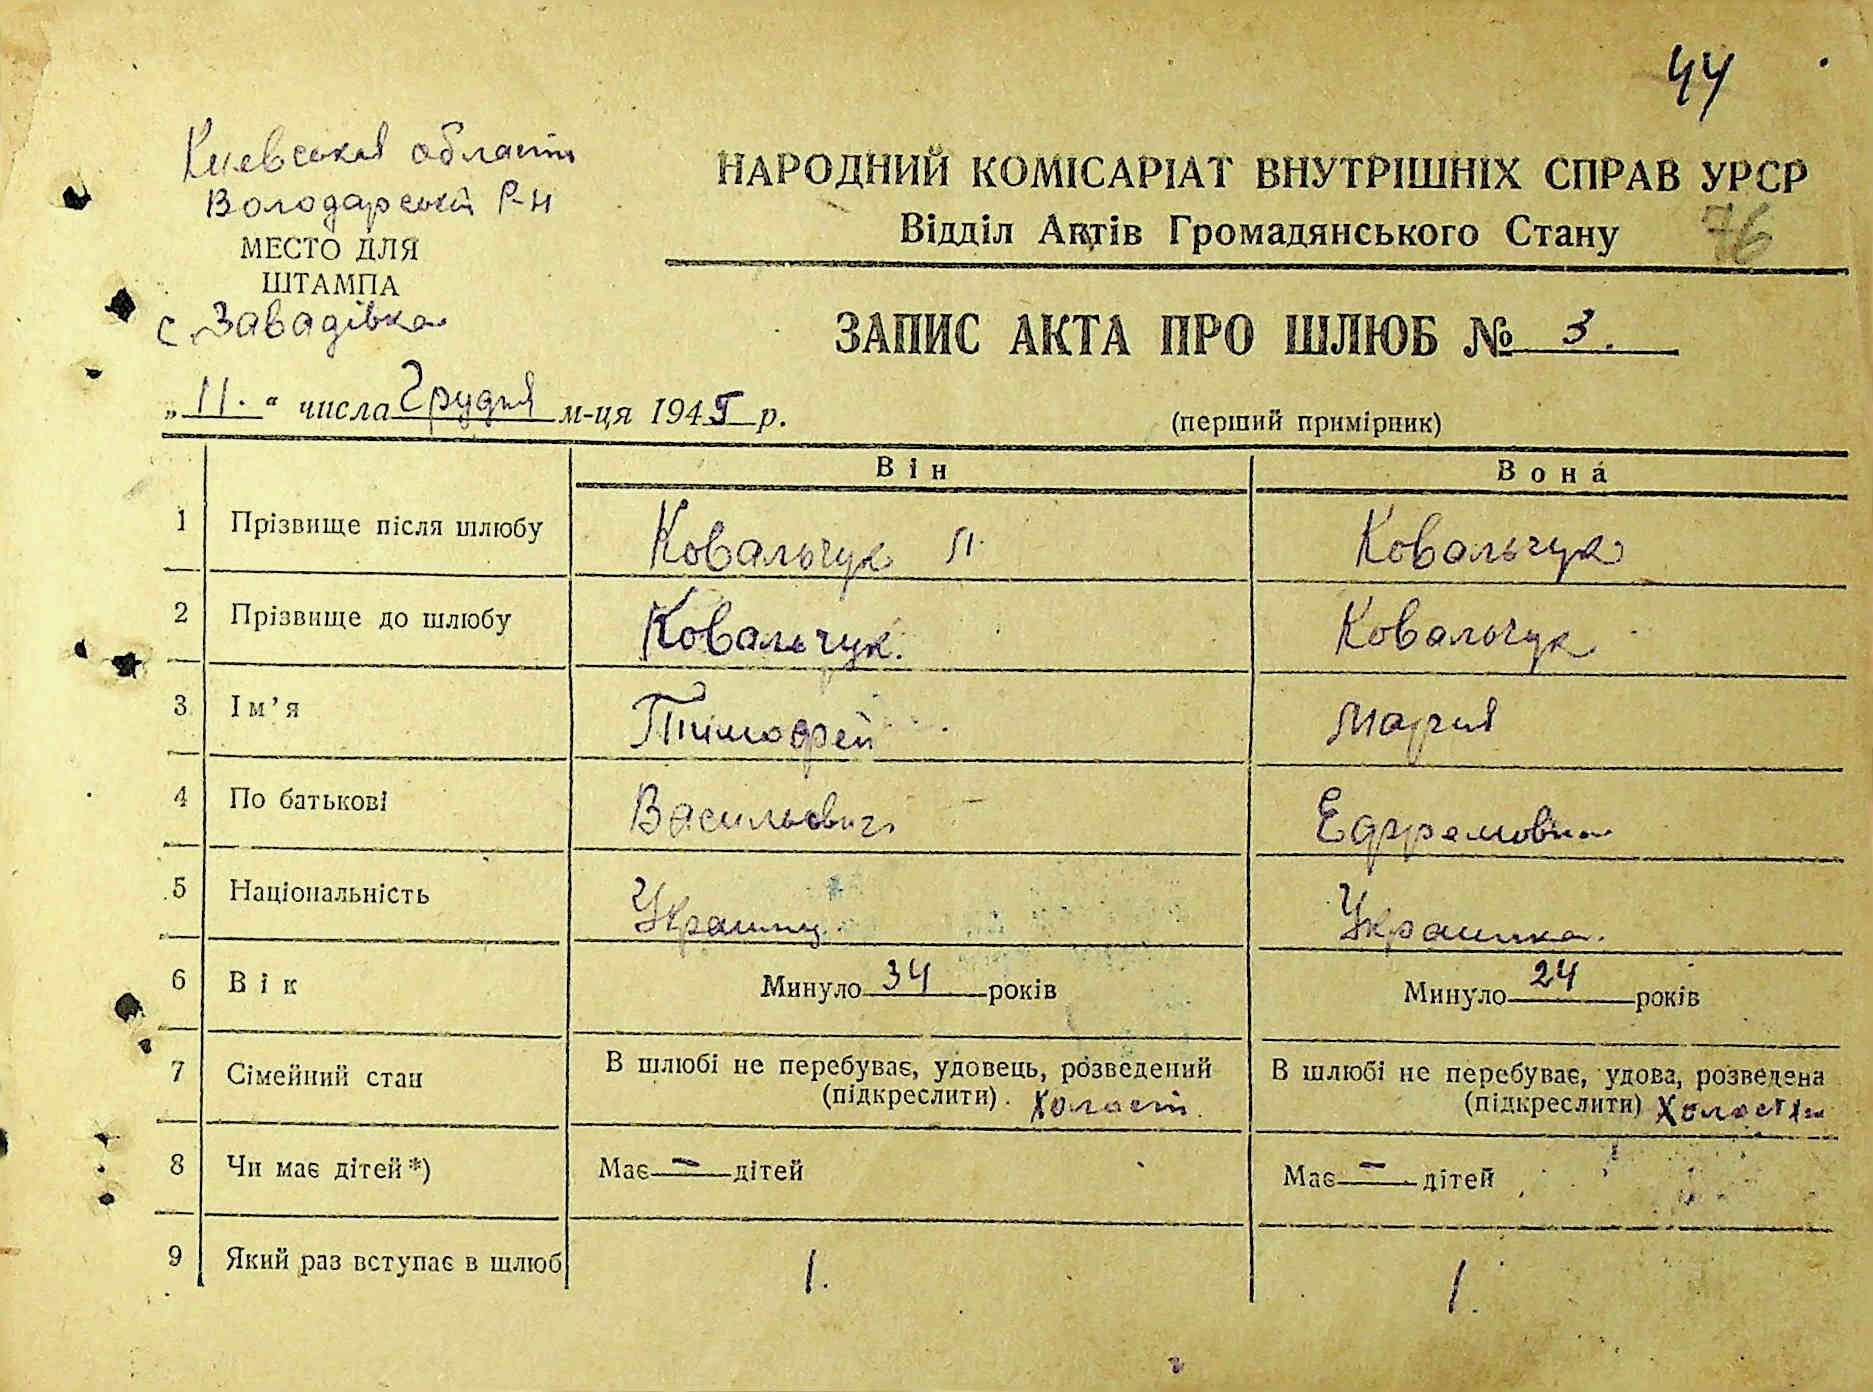 44
Киевська область
Володарський Р-Н
МЕСТО ДЛЯ
ШТАМПА
с. Завадівка
НАРОДНИЙ КОМІСАРІАТ ВНУТРІШНІХ СПРАВ УРСР
Відділ Актів Громадянського Стану 76
ЗАПИС АКТА ПРО ШЛЮБ № 3.
„11." числа Грудня м-ця 1945 р.
(перший примірник)
Він Вона
1 Прізвище після шлюбу Ковальчук Ковальчук
2 Прізвище до шлюбу Ковальчук. Ковальчук
3 Ім'я Тимофей Мария
4 По батькові Васильевич Ефремовна
5 Національність Украинец Украинка.
6 Вік Минуло 34 років Минуло 24 років
7 Сімейний стан В шлюбі не перебуває, удовець, розведений В шлюбі не перебуває, удова, розведена
(підкреслити). холост. (підкреслити)
8 Чи має дітей*) Має — дітей Має — дітей
9 Який раз вступає в шлюб 1. 1.